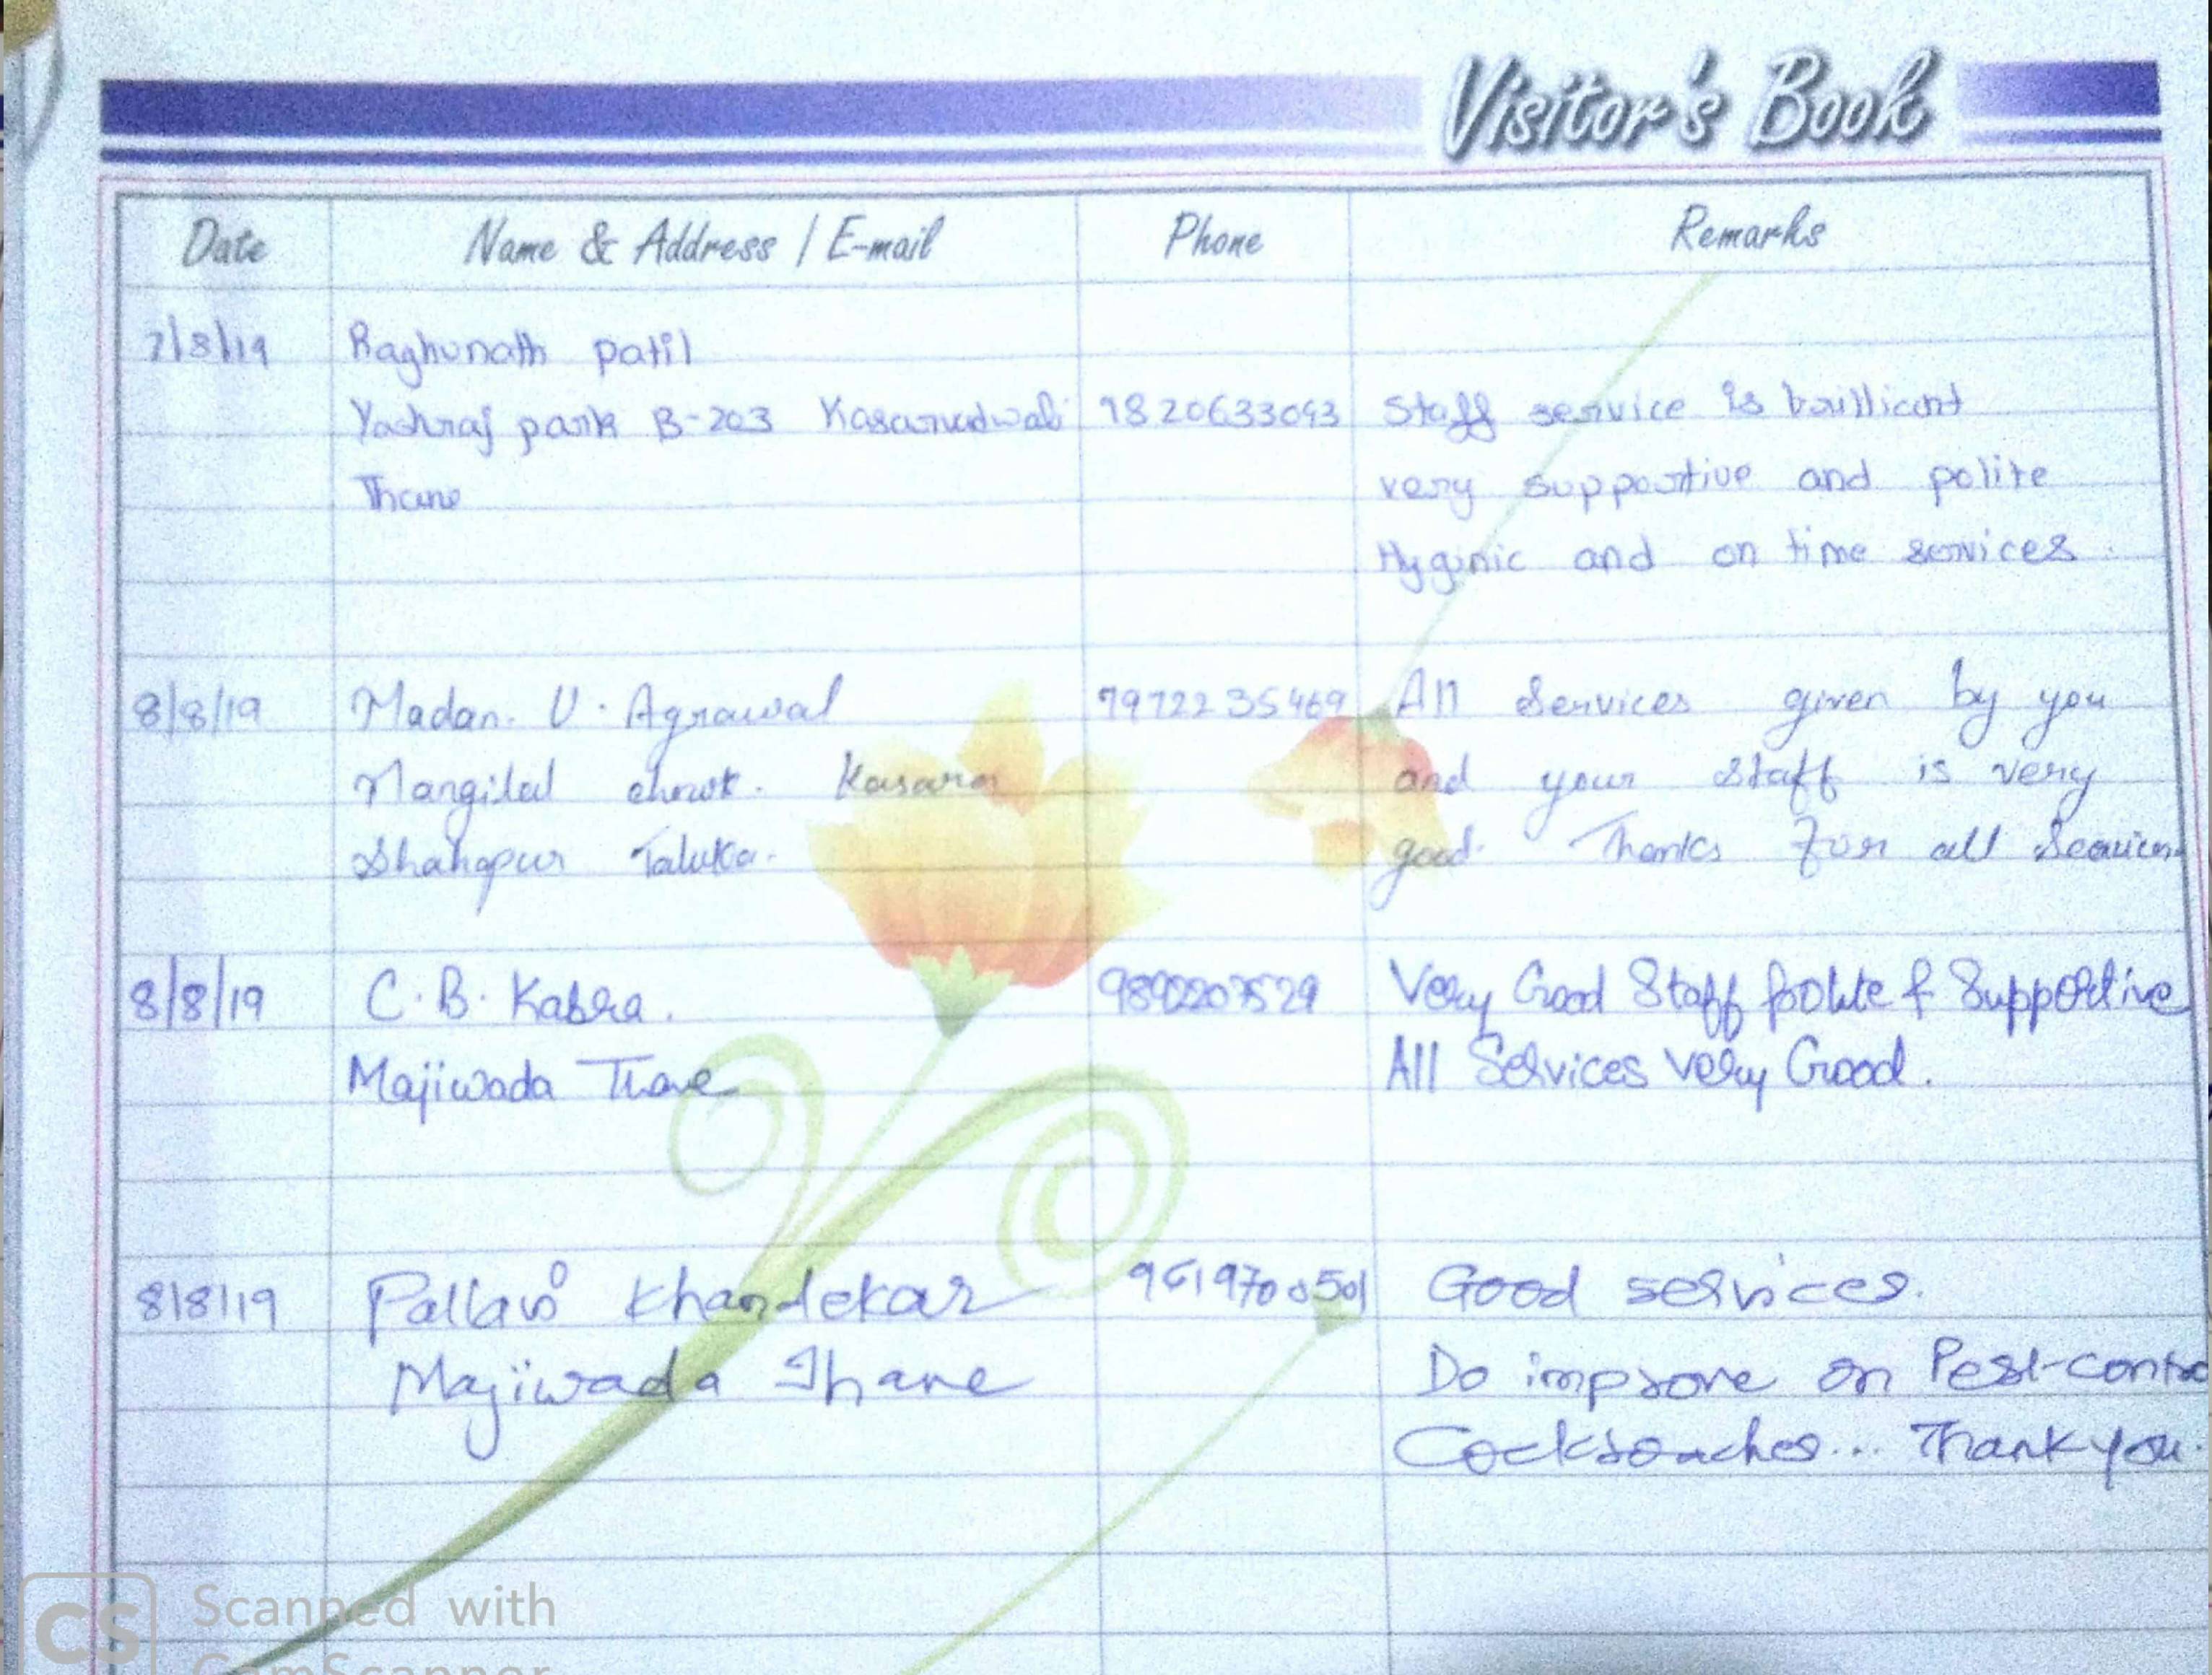 Visitor's Book
Date Name & Address / E-mail Phone Remarks
7/8/19 Raghunath patil
Yashraj park B-203 Kasarvadwali 9820633093 Staff service is brillient
Thane very supportive and polite
Hyginic and on time services
8/8/19 Madan. U. Agrawal 7972235469 All Services given by you
Mangilal chowk. Kasara and your staff is very
Shahapur Taluka. good. Thanks for all Services
8/8/19 C. B. Kabra. Very Good Staff polite & Supportive
Majiwada Thane All Services very Good.
8/8/19 Pallavi Khandekar Good services.
Majiwada Thane Do improve on Pest-contro
Cockroaches... Thank you.
CS Scanned with
CamScanner